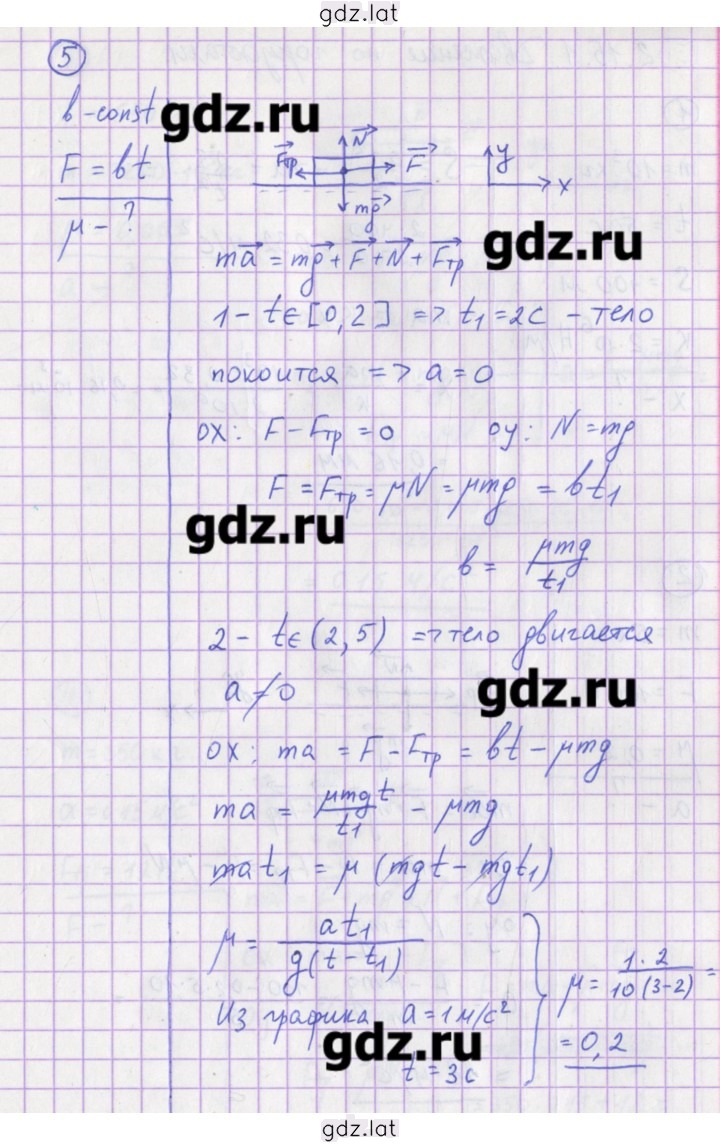 gdz.lat
5
b - const
gdz.ru
F = bt
μ - ?
N
Fтр
F
mg
y
x
ma = mg + F + N + Fтр
gdz.ru
1 - t∈[0,2] => t₁ = 2с - тело
покоится => a = 0
ox: F - Fтр = 0 oy: N = mg
F = Fтр = μN = μmg = bt₁
gdz.ru
b = μmg/t₁
2 - t∈(2,5) => тело двигается
a ≠ 0
gdz.ru
ox: ma = F - Fтр = bt - μmg
ma = μmgt/t₁ - μmg
mat₁ = μ(mgt - mgt₁)
μ = at₁/g(t - t₁)
μ = 1·2/10(3-2) =
= 0,2
Из графика a = 1 м/с²
gdz.ru
t = 3с
gdz.lat